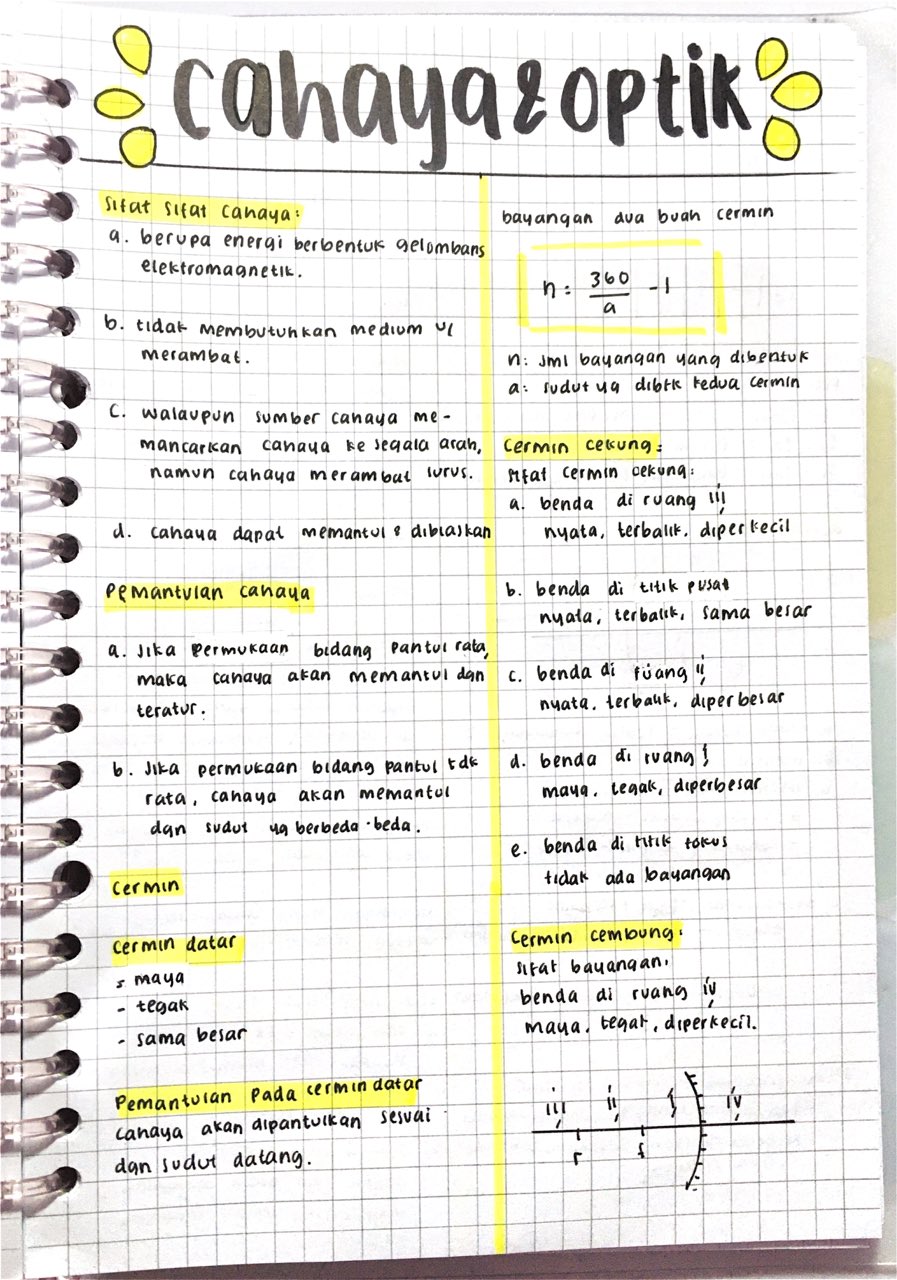 cahaya & optik
Sifat Sifat Cahaya:
a. berupa energi berbentuk gelombang
elektromagnetik.
b. tidak membutuhkan medium u/
merambat.
c. walaupun sumber cahaya me-
mancarkan cahaya ke segala arah,
namun cahaya merambat lurus.
d. cahaya dapat memantul & dibiaskan
Pemantulan cahaya
a. Jika permukaan bidang pantul rata,
maka cahaya akan memantul dgn
teratur.
b. Jika permukaan bidang pantul tdk
rata, cahaya akan memantul
dgn sudut yg berbeda-beda.
Cermin
Cermin datar
- maya
- tegak
- sama besar
Pemantulan Pada cermin datar
cahaya akan dipantulkan sesuai
dgn sudut datang.
bayangan dua buah cermin
n = 360/a - 1
n: jml bayangan yang dibentuk
a: sudut yg dibtk kedua cermin
Cermin cekung:
sifat cermin cekung:
a. benda di ruang iii
nyata, terbalik, diperkecil
b. benda di titik pusat
nyata, terbalik, sama besar
c. benda di ruang ii
nyata, terbalik, diperbesar
d. benda di ruang i
maya, tegak, diperbesar
e. benda di titik fokus
tidak ada bayangan
Cermin cembung:
sifat bayangan,
benda di ruang iv
maya, tegak, diperkecil.
iii ii i iv
r f